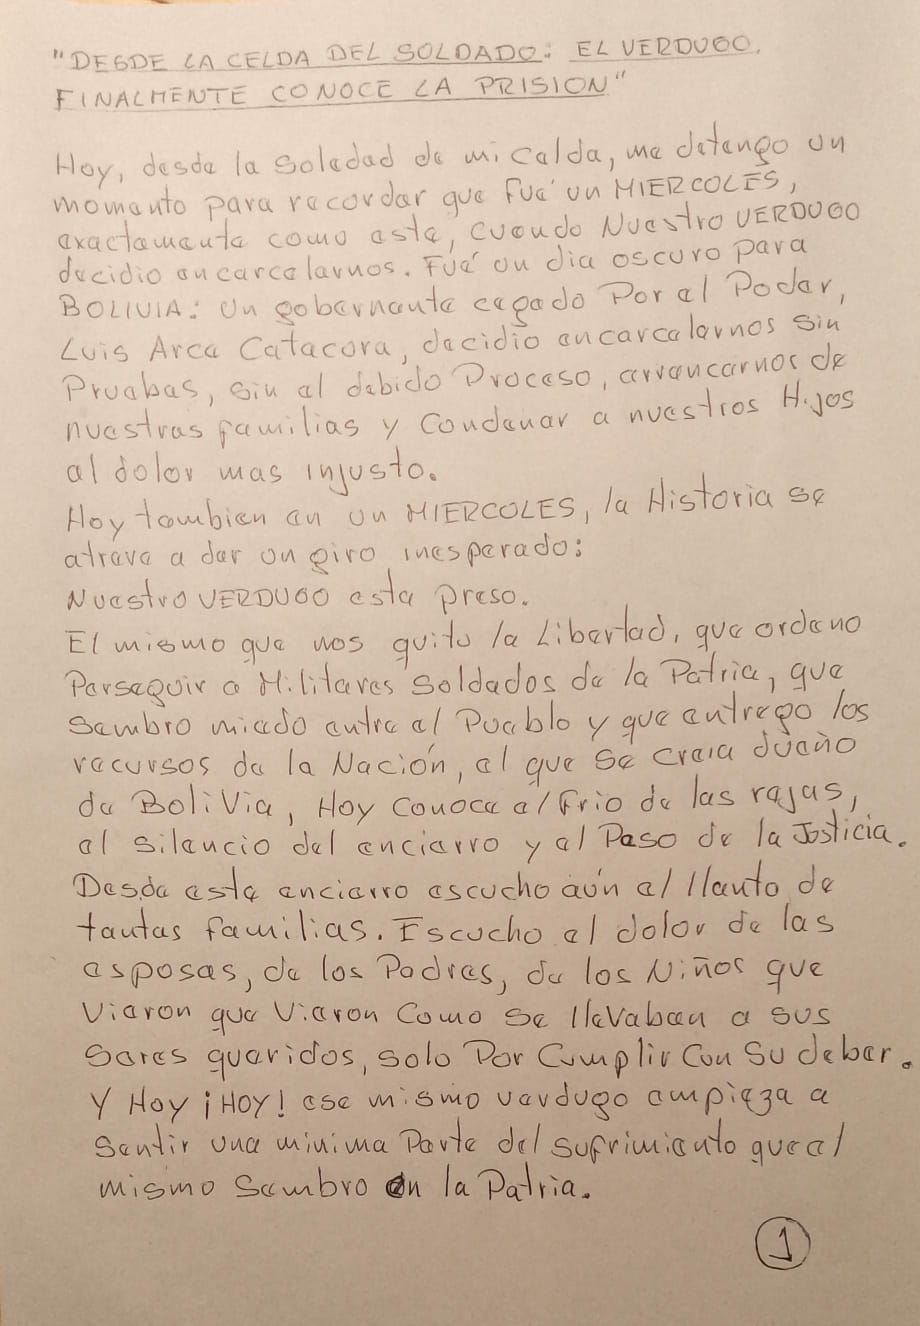 "DESDE LA CELDA DEL SOLDADO: EL VERDUGO.
FINALMENTE CONOCE LA PRISION"
Hoy, desde la soledad de mi celda, me detengo un
momento para recordar que Fue' un MIERCOLES,
exactamente como este, cuando Nuestro VERDUGO
decidio encarcelarnos. Fue' un dia oscuro para
BOLIVIA: Un gobernante cegado Por el Poder,
Luis Arce Catacora, decidio encarcelarnos sin
Pruebas, sin el debido Proceso, arrancarnos de
nuestras familias y Condenar a nuestros Hijos
al dolor mas injusto.
Hoy tambien en un MIERCOLES, la Historia se
atreve a dar un giro inesperado:
Nuestro VERDUGO esta preso.
El mismo que nos quito la Libertad, que ordeno
Perseguir a Militares Soldados de la Patria, que
Sembro miedo entre el Pueblo y que entrego los
recursos de la Nación, el que se creia dueño
de BoliVia, Hoy Conoce el frio de las rejas,
el silencio del encierro y el Peso de la Justicia.
Desde este encierro escucho aún el llanto de
tantas familias. Escucho el dolor de las
esposas, de los Padres, de los Niños que
Vieron que Vieron Como se lleVaban a sus
Seres queridos, solo Por Cumplir Con Su deber.
Y Hoy ¡HOY! ese mismo verdugo empieza a
Sentir una minima Parte del sufrimiento que el
mismo Sembro en la Patria.
1